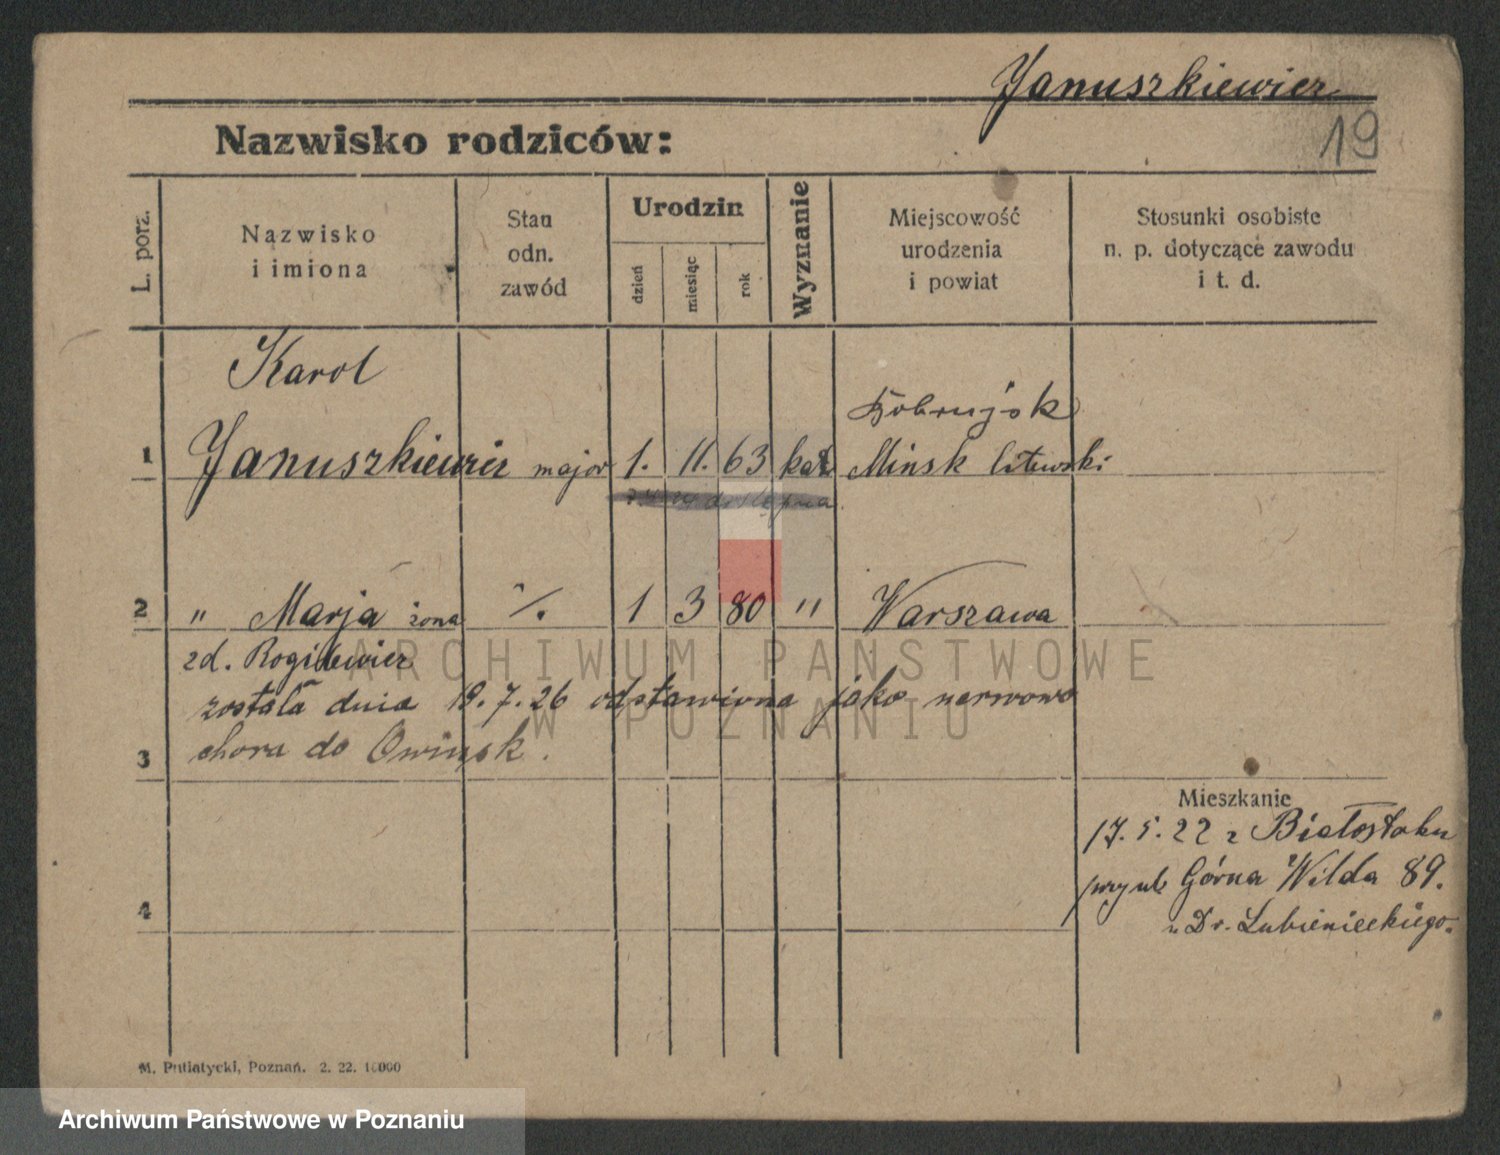 Januszkiewicz
19
Nazwisko rodziców:
L. porz.
Nazwisko
i imiona
Stan
odn.
zawód
Urodzin
dzień
miesiąc
rok
Wyznanie
Miejscowość
urodzenia
i powiat
Stosunki osobiste
n. p. dotyczące zawodu
i t. d.
Karol
Bobrujsk
1 Januszkiewicz major 1. 11. 63 kat Mińsk litewski
2 " Marja żona ·/. 1 3 80 " Warszawa
zd.
została dnia 19.7.26 odstawiona jako nerwowo
3 chora do Owinsk.
Mieszkanie
17.5.22 z Białostoku
przy ul Górna Wilda 89.
u Dr. Lubienieckiego.
4
M. Putiatycki, Poznań. 2. 22. 10000
ARCHIWUM PAŃSTWOWE
W POZNANIU
Archiwum Państwowe w Poznaniu